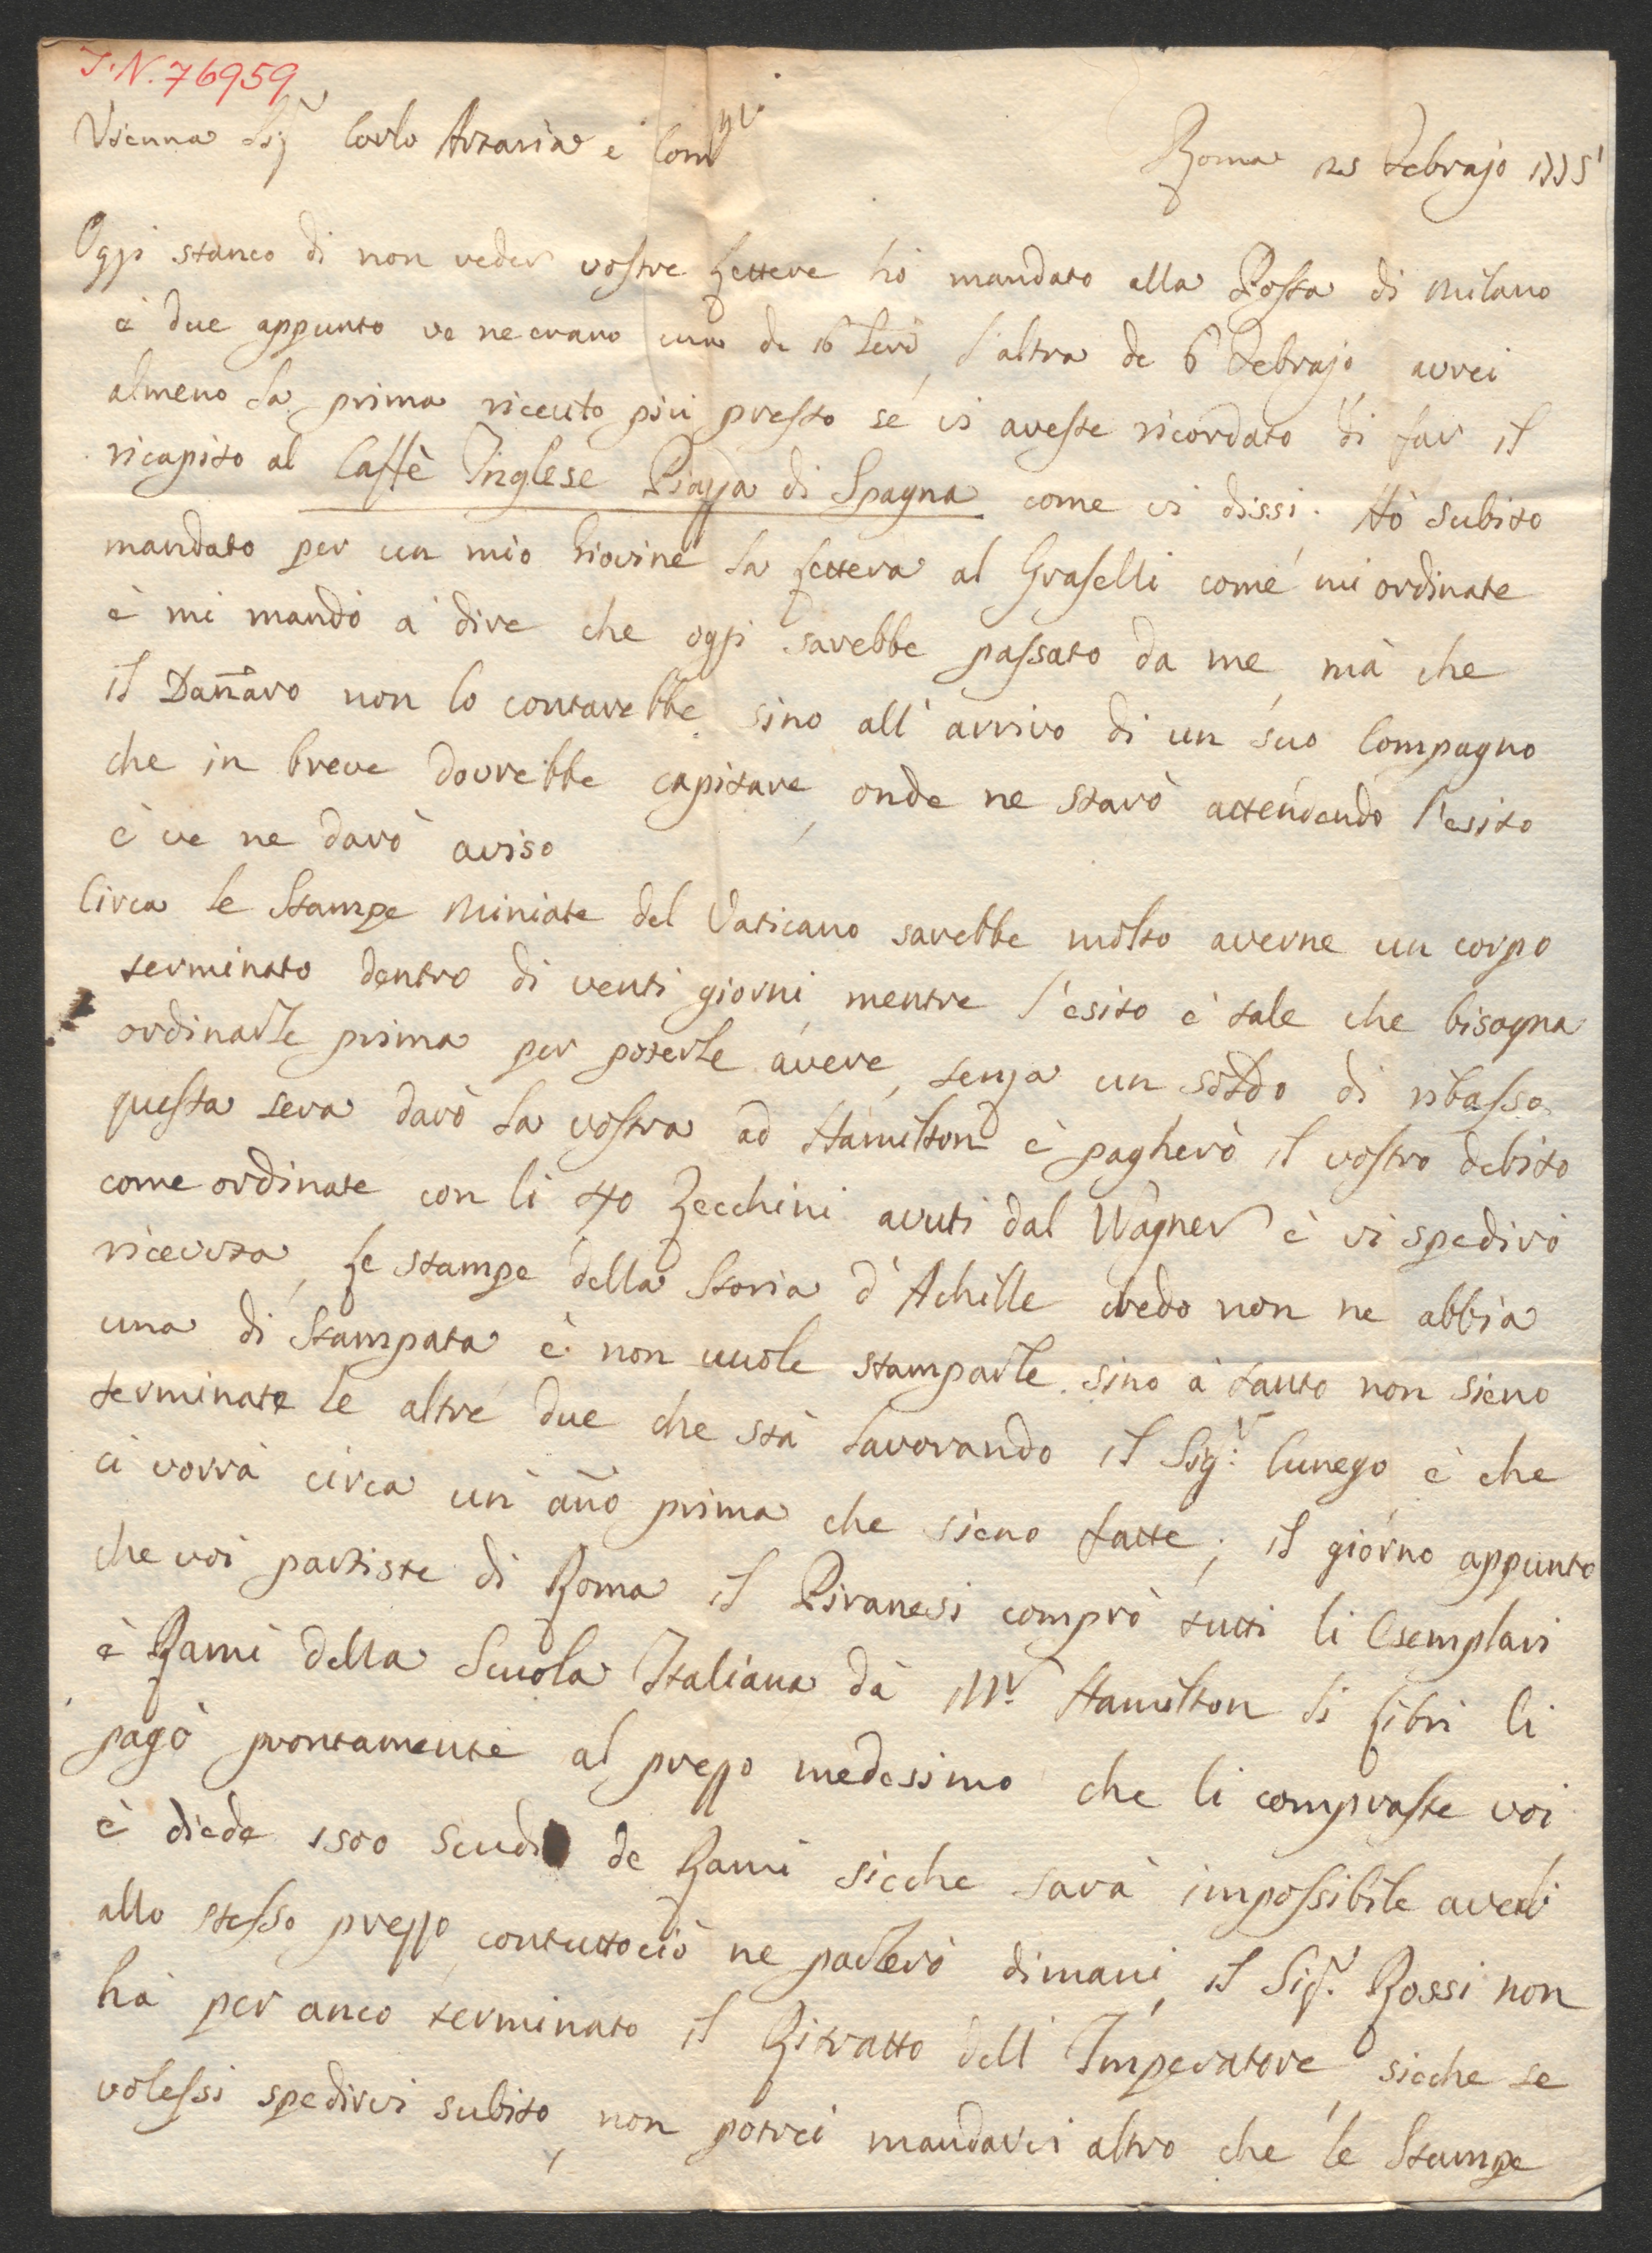 I.N. 76959
Vienna Sigr Carlo Artaria e Compi
Roma 25 Febrajo 1775
Oggi stanco di non veder vostre Lettere hò mandato alla Posta di Milano
è due appunto ve ne erano una de 16, l'altra de 6 Febrajo, avrei
almeno la prima riceuto più presto se vi aveste ricordato di far il
ricapito al Caffè Inglese Piazza di Spagna come vi dissi. Hò subito
mandato per un mio Giovine la Lettera al Graselli come mi ordinate
è mi mandò à dire che oggi sarebbe passato da me, mà che
il Dañaro non lo contarebbe sino all'arrivo di un suo Compagno
che in breve dovrebbe capitare, onde ne starò attendendo l'esito
è ve ne darò aviso
Circa le Stampe Miniate del Vaticano sarebbe molto averne un corpo
terminato dentro di venti giorni, mentre l'esito è tale che bisogna
ordinarle prima per poterle avere, senza un soldo di ribasso
questa sera darò la vostra ad Hamilton è pagherò il vostro debito
come ordinate con li 40 Zecchini avuti dal Wagner è vi spedirò
ricevuta, Le stampe della Storia d'Achille credo non ne abbia
una di Stampata è non vuole stamparle sino à tanto non sieno
terminate le altre due che stà lavorando il Sigr: Cunego è che
ci vorrà circa un'año prima che sieno fatte; il giorno appunto
che voi partiste di Roma il Piranesi comprò tutti li Esemplari
è Rami della Scuola Italiana dà Mr. Hamilton li Libri li
pagò prontamente al prezzo medesimo che li compraste voi
è diede 1500 Scudi de Rami sicche sarà impossibile averli
allo stesso prezzo, contuttociò ne parlerò dimani, il Sigr. Rossi non
hà per anco terminato il Ritratto dell'Imperatore, sicche se
volessi spedirvi subito, non potrei mandarvi altro che le Stampe